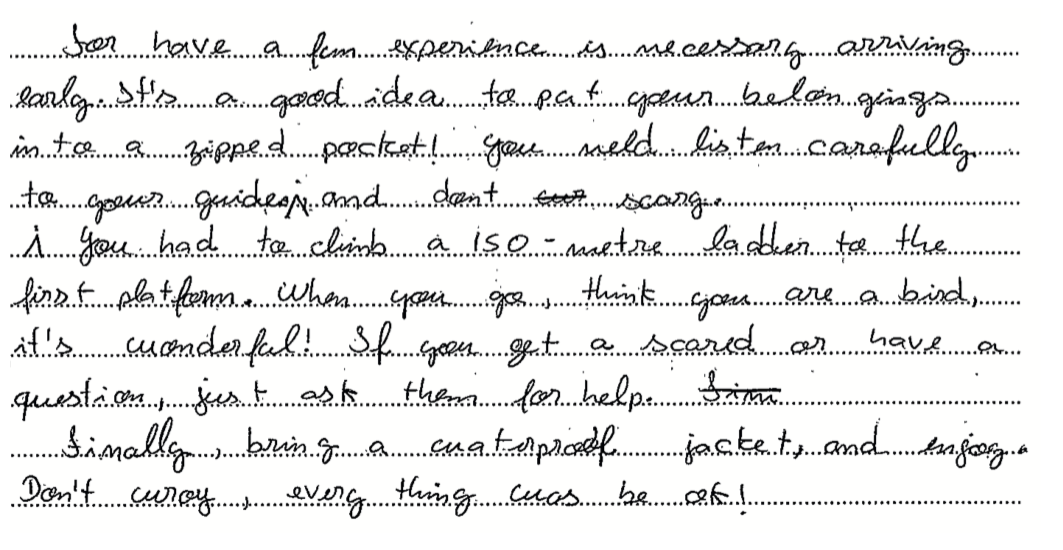 For have a fun experience is necessary arriving
early. It's a good idea to put your belongings
into a zipped pocket! You neld listen carefully
to your guides, and dont scary.
You had to climb a 150-metre ladder to the
first platform. When you go, think you are a bird,
it's wonderful! If you get a scared or have a
question, just ask them for help.
Finally, bring a waterproof jacket, and enjoy.
Don't wroy, every thing was be ok!